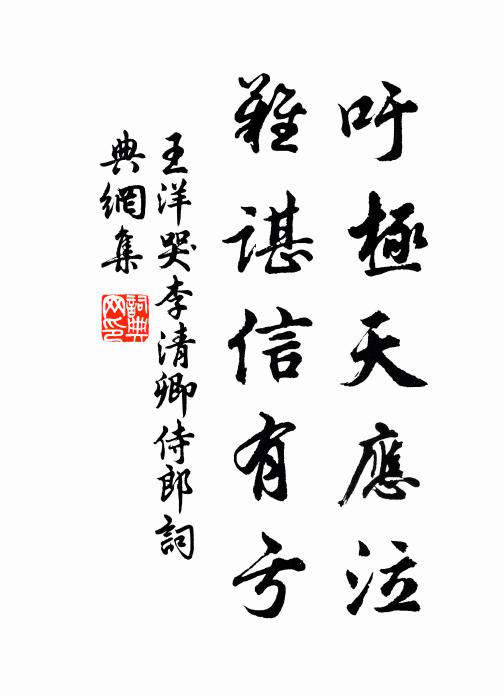 吁極天應泣
難諶信有亏
王洋哭李清卿侍郎詞
典網集
詞典网印